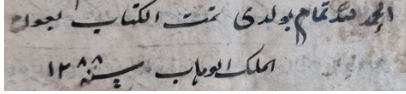 الحمد لله تمام بولدى تمت الكتاب بعون
الملك الوهاب سنة ١٢٨٨